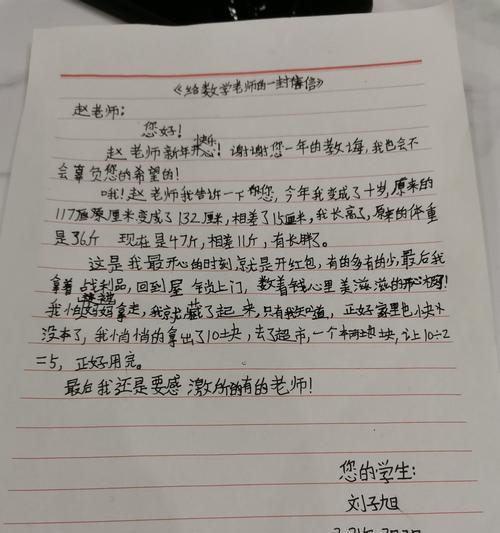 《给数学老师的一封信》
赵老师:
您好!
赵老师新年快乐!谢谢您一年的教诲,我也会不
会辜负您的希望的!
哦!赵老师我告诉一下您,今年我变成了十岁,原来的
117厘米变成了132厘米,相差了15厘米,我长高了,原来的体重
是36斤 现在是47斤,相差11斤,有长胖了。
这是我最开心的时刻怎么是开红包,有的多有的少,最后我
拿着战利品,回到屋 锁上门,数着钱心里美滋滋的开心
我怕妈妈拿走,我就藏了起来,只有我知道,正好家里也快
没本了,我悄悄的拿出了10块,去了超市,一个本两块,10÷2
=5,正好用完。
最后我还是要感激所有的老师!
您的学生:
刘子旭